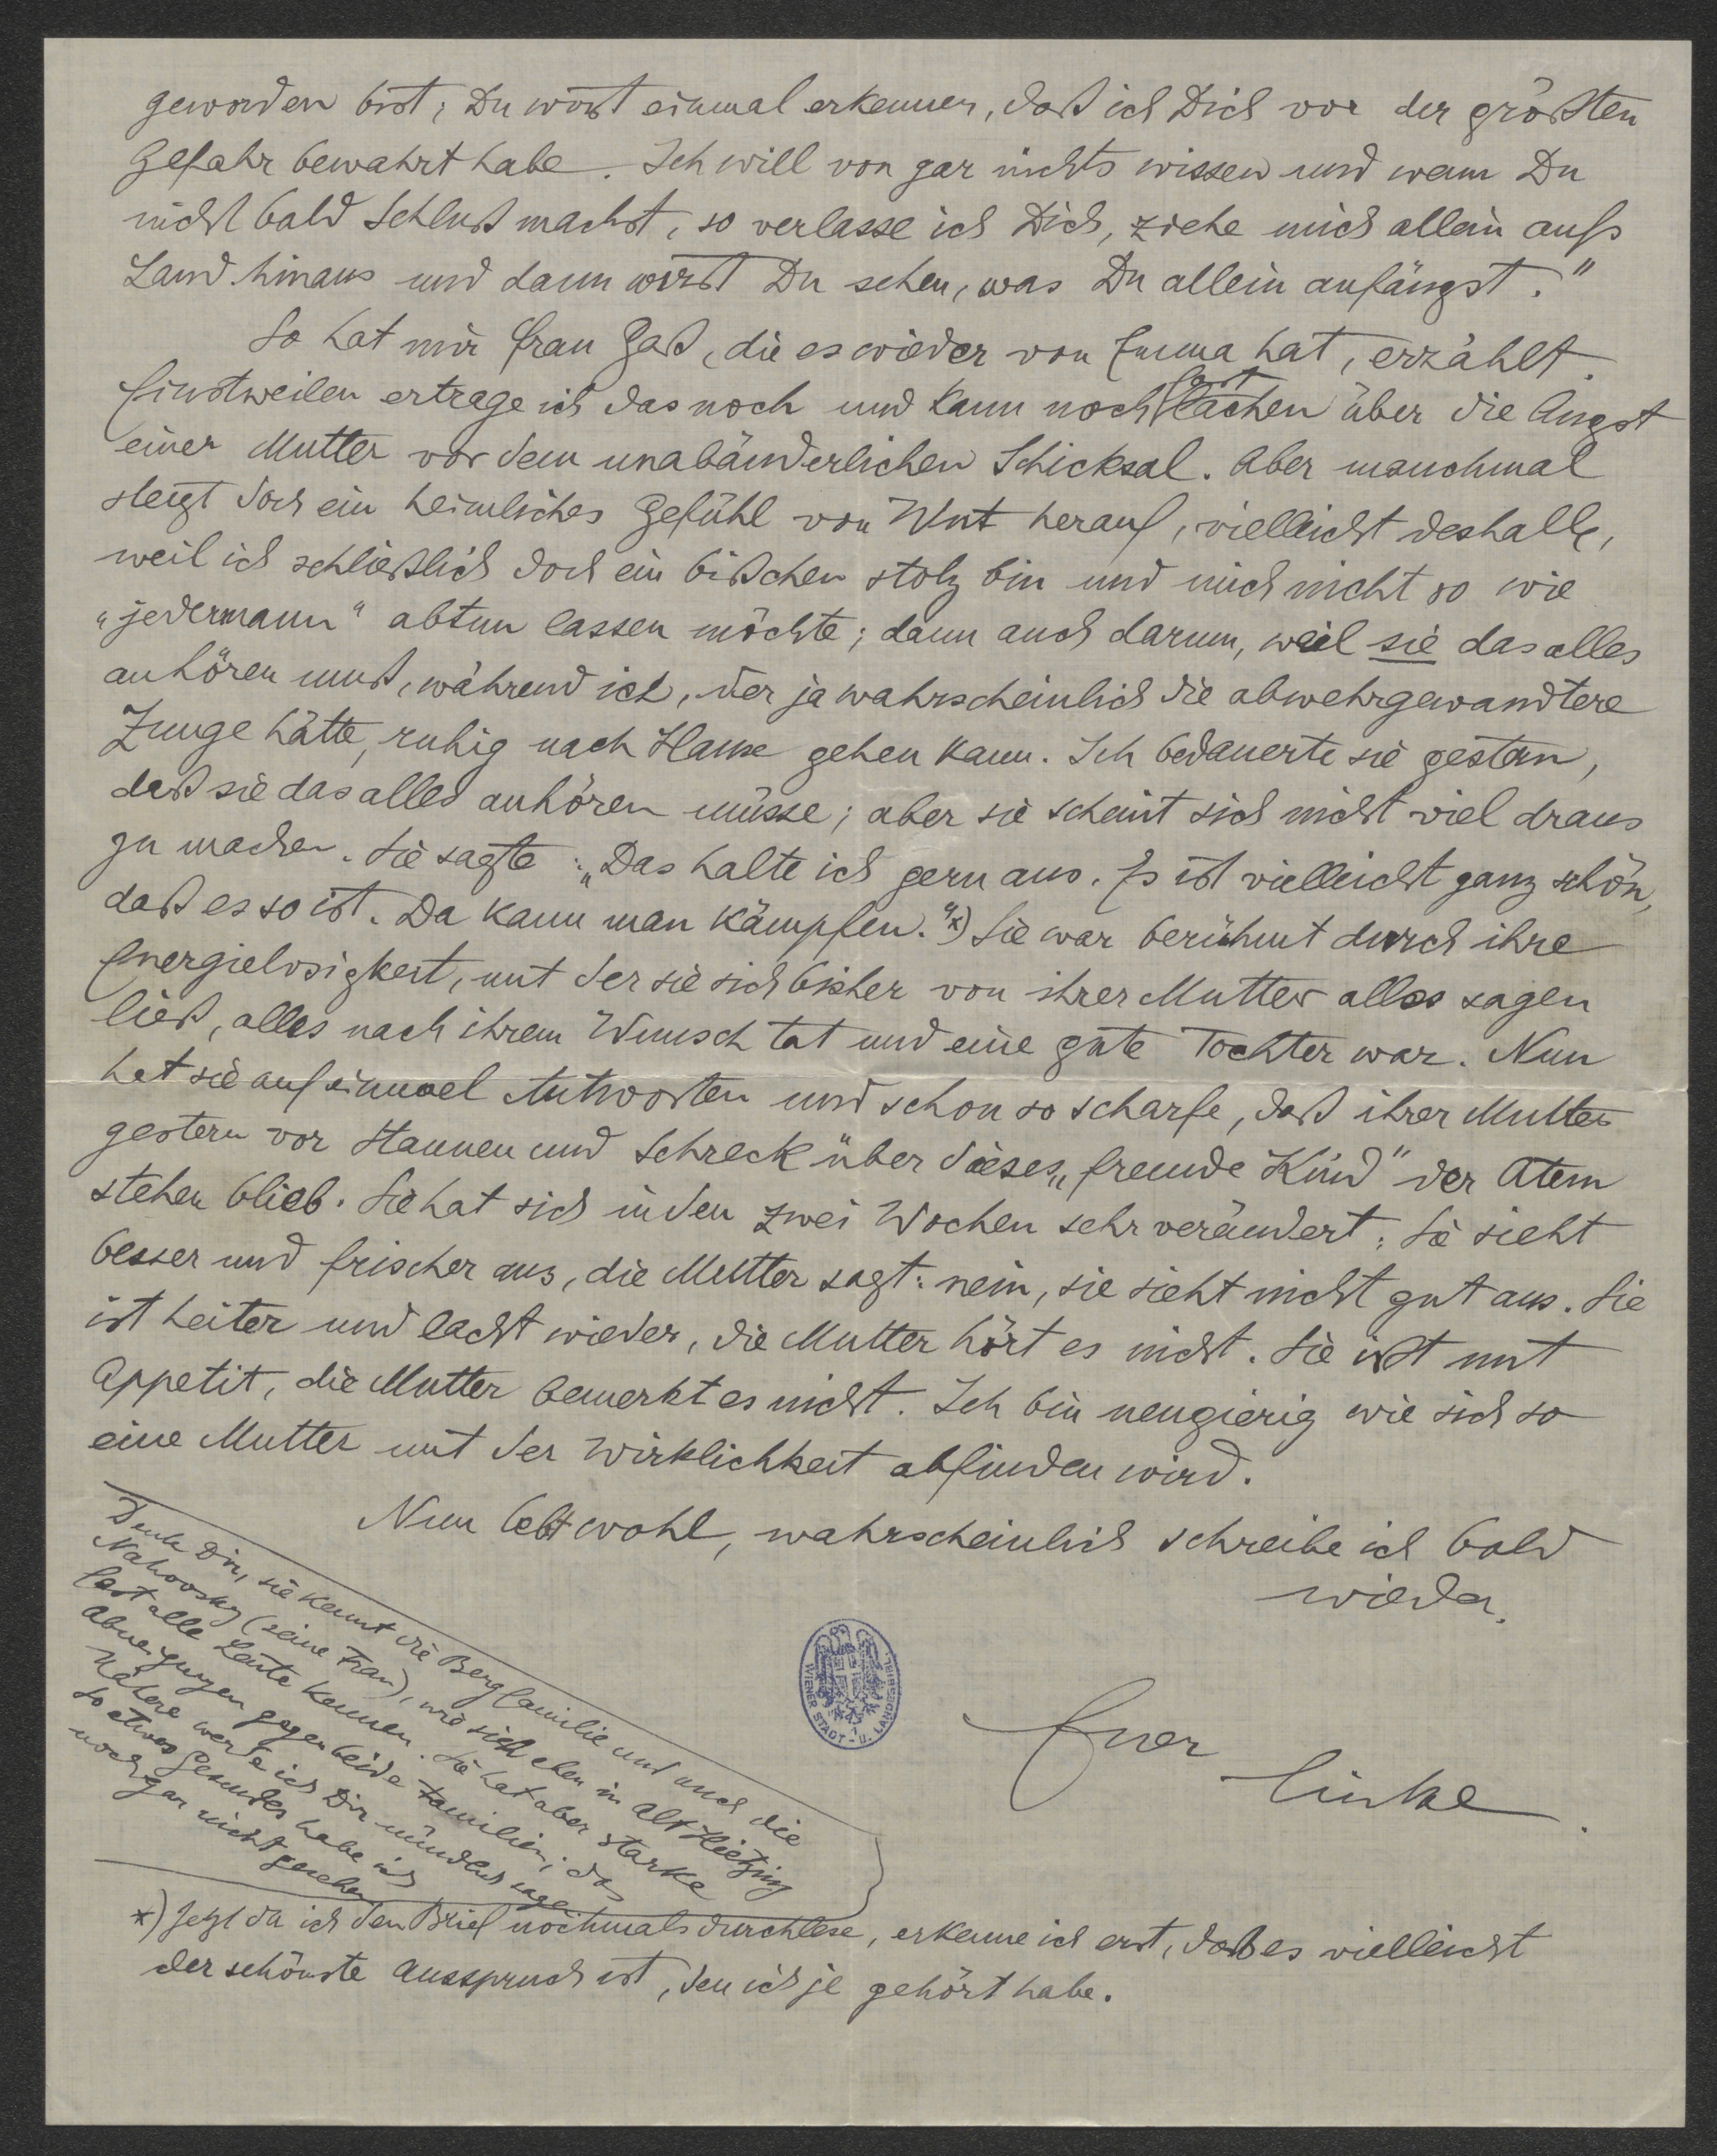 geworden bist; Du wirst einmal erkennen, daß ich Dich vor der größten
Gefahr bewahrt habe. Ich will von gar nichts wissen und wenn Du
nicht bald Schluß machst, so verlasse ich Dich, ziehe mich allein aufs
Land hinaus und dann wirst Du sehen, was Du allein anfängst."
So hat mir Frau Gaß, die es wieder von Emma hat, erzählt.
Einstweilen ertrage ich das noch und kann noch fast lachen über die Angst
einer Mutter vor dem unabänderlichen Schicksal. Aber manchmal
steigt doch ein heimliches Gefühl von Wut herauf, vielleicht deshalb,
weil ich schließlich doch ein bißchen stolz bin und mich nicht so wie
"jedermann" abtun lassen möchte; dann auch darum, weil sie das alles
anhören muß, während ich, der ja wahrscheinlich die abwehrgewandtere
Zunge hätte, ruhig nach Hause gehen kann. Ich bedauerte sie gestern,
daß sie das alles anhören müsse; aber sie scheint sich nicht viel draus
zu machen. Sie sagte: „Das halte ich gern aus. Es ist vielleicht ganz schön,
daß es so ist. Da kann man kämpfen."*) Sie war berühmt durch ihre
Energielosigkeit, mit der sie sich bisher von ihrer Mutter alles sagen
ließ, alles nach ihrem Wunsch tat und eine gute Tochter war. Nun
hat sie auf einmal Antworten und schon so scharfe, daß ihrer Mutter
gestern vor Staunen und Schreck über dieses „fremde Kind" der Atem
stehen blieb. Sie hat sich in den zwei Wochen sehr verändert: Sie sieht
besser und frischer aus, die Mutter sagt: nein, sie sieht nicht gut aus. Sie
ist heiter und lacht wieder, die Mutter hört es nicht. Sie ißt mit
Appetit, die Mutter bemerkt es nicht. Ich bin neugierig wie sich so
eine Mutter mit der Wirklichkeit abfinden wird.
Nun lebt wohl, wahrscheinlich schreibe ich bald
wieder.
Euer
Linke.
Denk Dir, sie kennt die Bergfamilie und auch die
Nahowsky (seine Frau), wie sich eben in Alt Hietzing
fast alle Leute kennen. Sie hat aber starke
Abneigungen gegen beide Familien; das
Nähere werde ich Dir mündlich sagen
So etwas Gesundes habe ich
noch gar nicht gesehen
WIENER STADT- U. LANDESBIBL.
*) Jetzt da ich den Brief nochmals durchlese, erkenne ich erst, daß es vielleicht
der schönste Ausspruch ist, den ich je gehört habe.